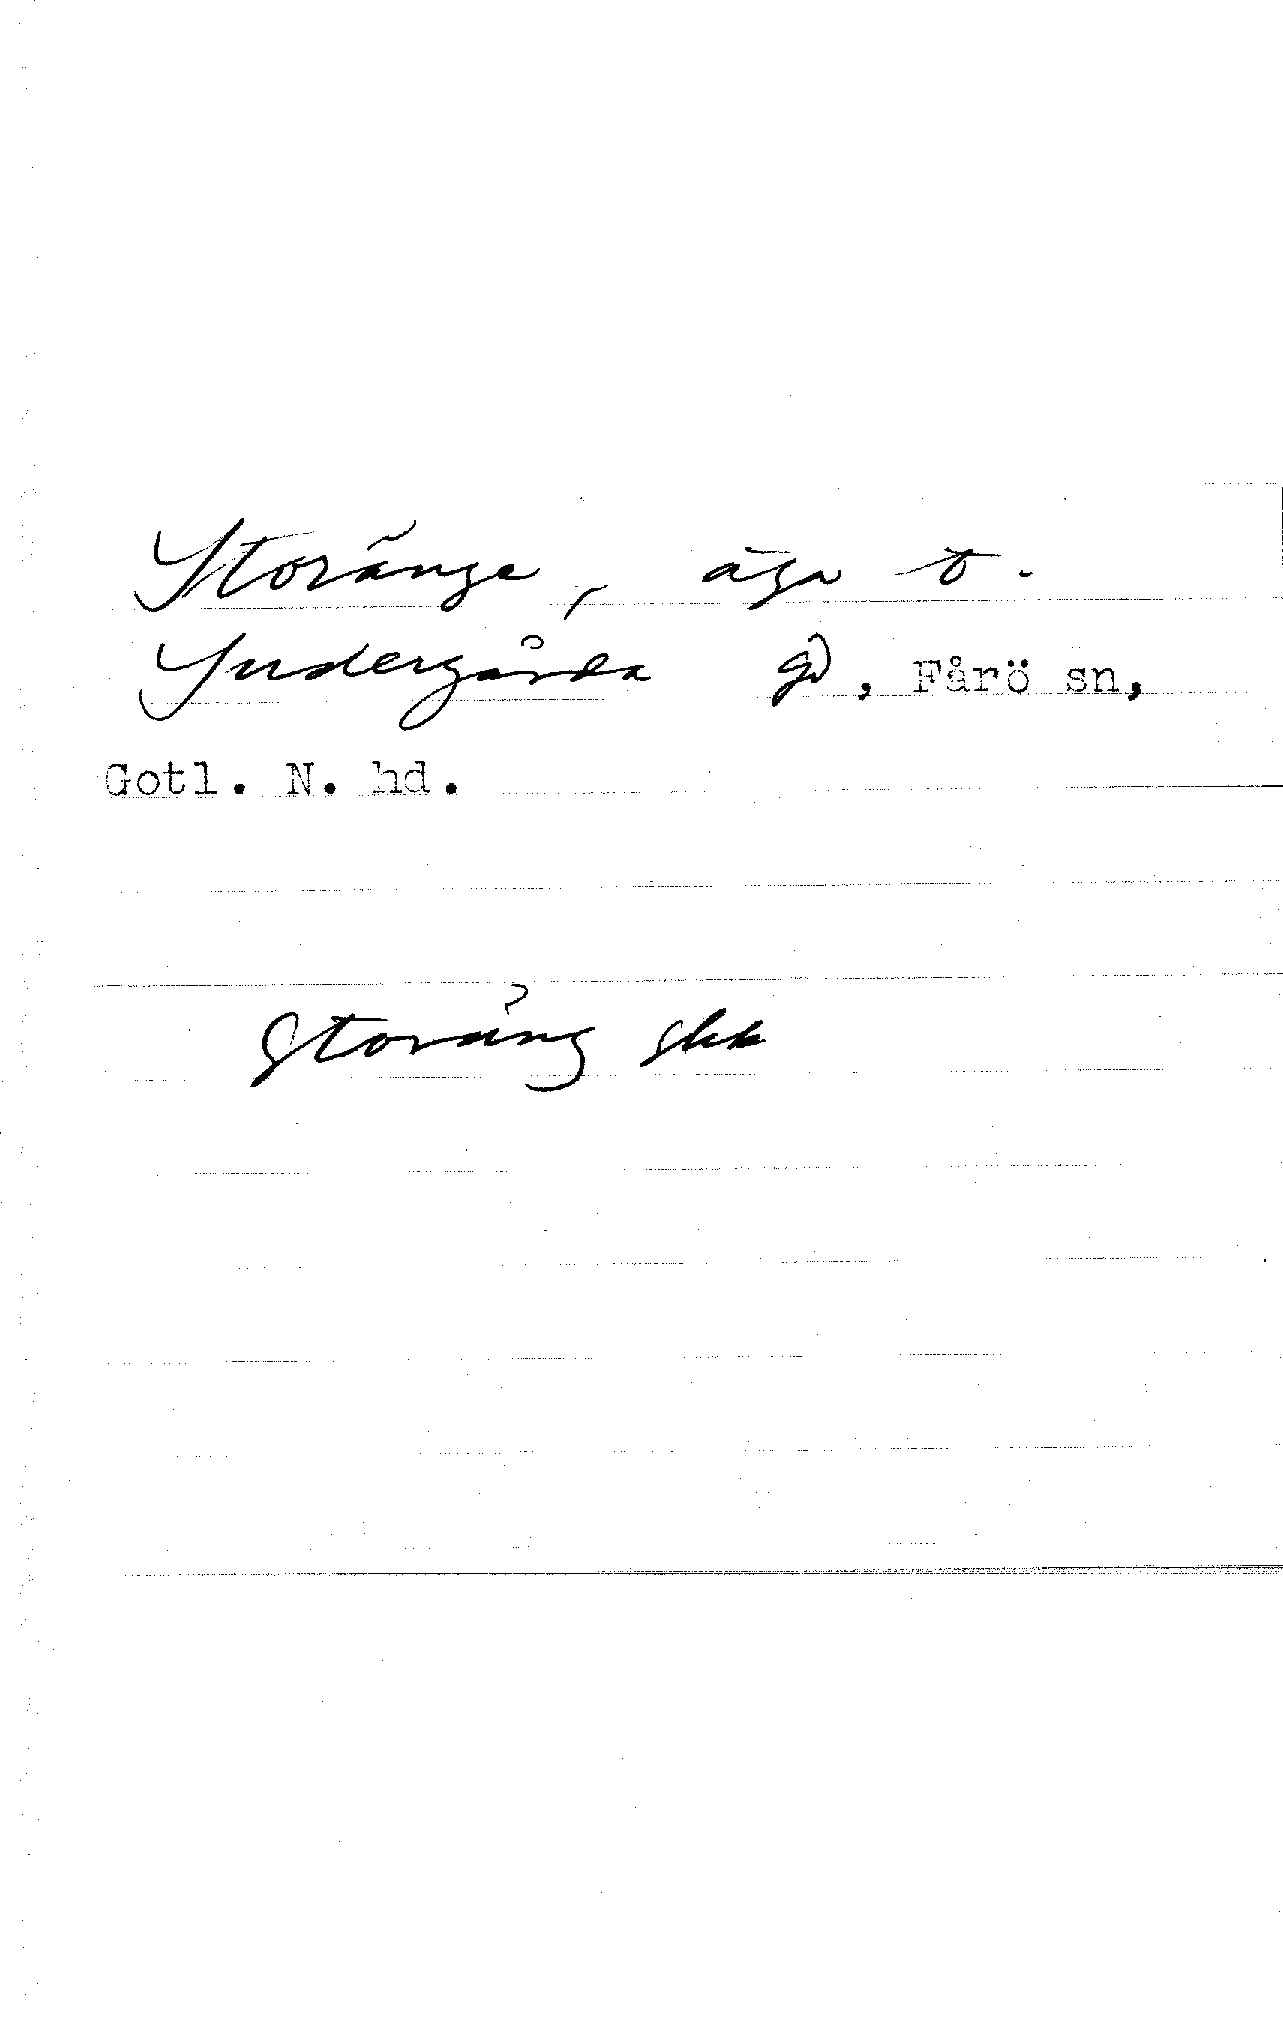 Storänge, äga t.
Sudergårda gd, Fårö sn,
Gotl. N. hd.
Storäng skk